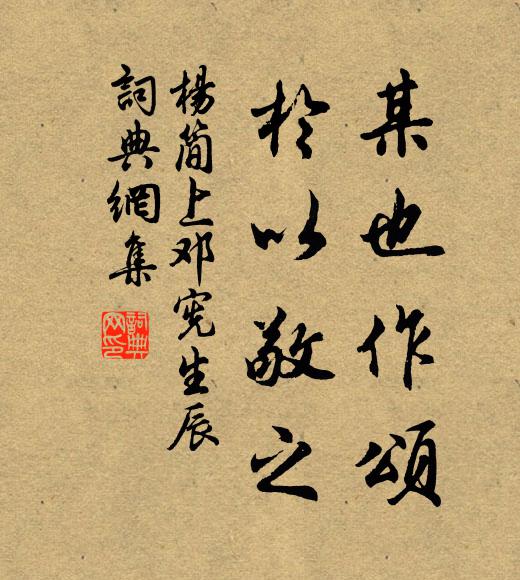 某也作頌
於以敬之
楊简上邓宪生辰
詞典網集
詞典網印